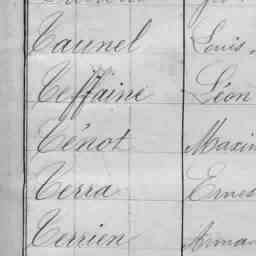 Taunel Louis
Teffaine Léon
Ténot Maxim
Terra Ernes
Terrien Arman